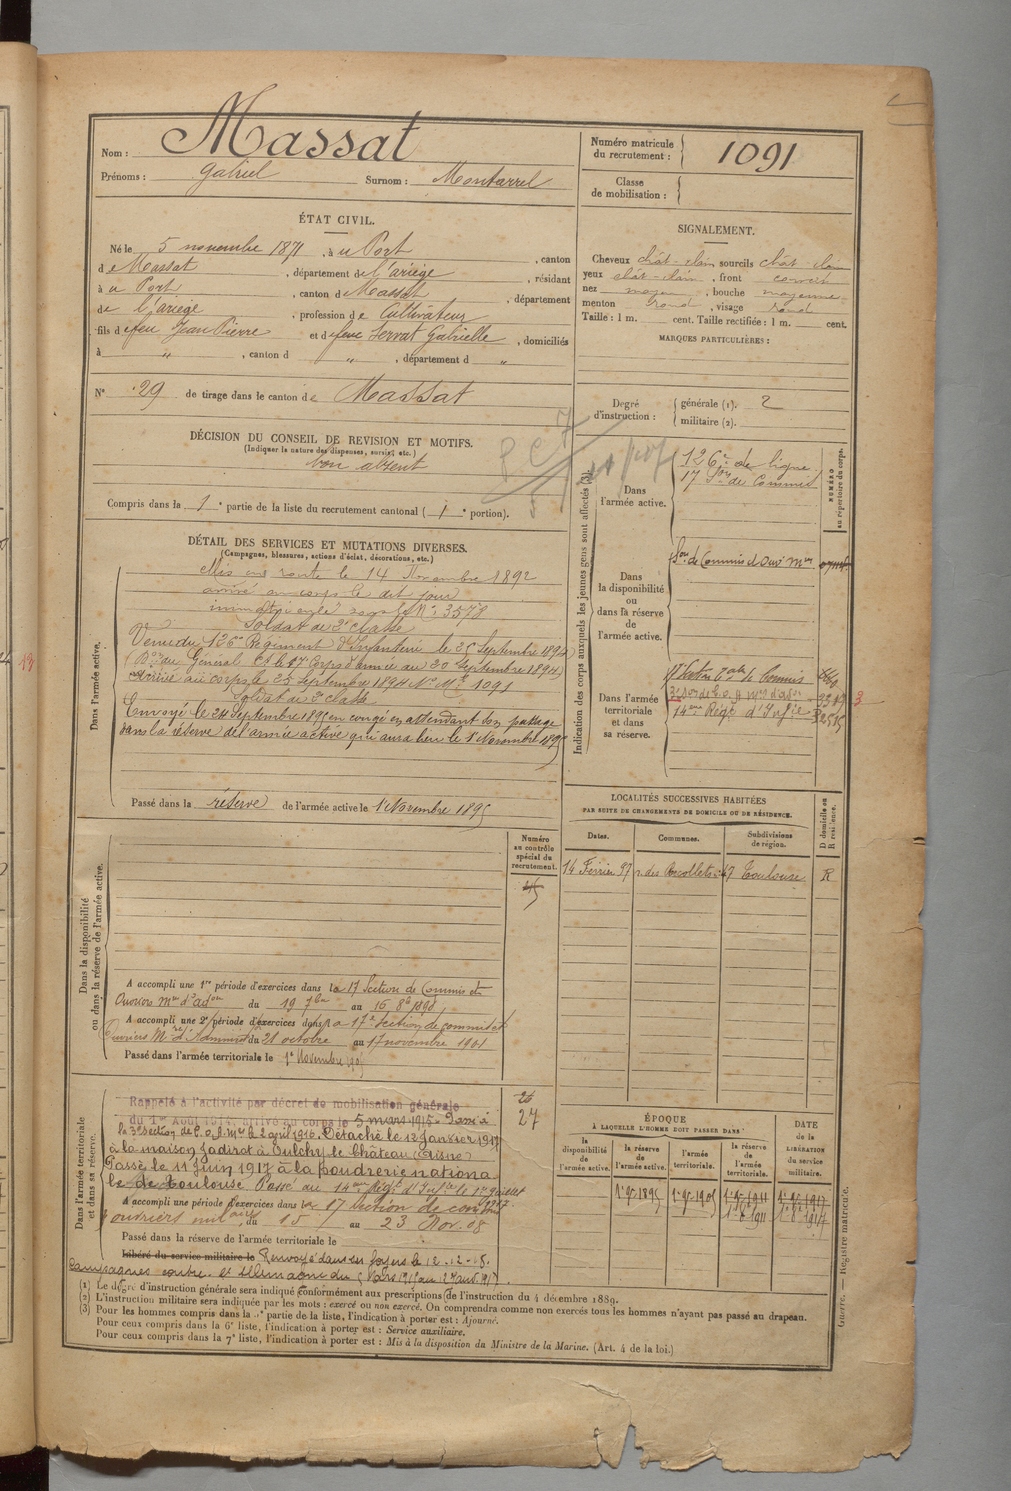 Nom : Massat
Prénoms : Gabriel Surnom : Montarrel
Numéro matricule du recrutement : 1091
Classe de mobilisation :
ÉTAT CIVIL.
Né le 5 novembre 1871, à u Port, canton
de Massat, département de l'ariège, résidant
à u Port, canton de Massat, département
de l'ariège, profession de Cultivateur
fils de feu Jean Pierre et de feue Servat Gabrielle, domiciliés
à " , canton d " , département d "
N° 29 de tirage dans le canton de Massat
SIGNALEMENT.
Cheveux chât-clain sourcils chât-clain
yeux chât-clain, front couvert
nez moyen, bouche moyenne
menton rond, visage rond
Taille : 1 m. cent. Taille rectifiée : 1 m. cent.
MARQUES PARTICULIÈRES :
Degré d'instruction : générale (1). 2
militaire (2).
DÉCISION DU CONSEIL DE REVISION ET MOTIFS.
(Indiquer la nature des dispenses, sursis, etc.)
bon absent
Compris dans la 1e partie de la liste du recrutement cantonal (1e portion).
DÉTAIL DES SERVICES ET MUTATIONS DIVERSES.
(Campagnes, blessures, actions d'éclat, décorations, etc.)
Dans l'armée active.
Mis en route le 14 Novembre 1892
arrivé au corps le dit jour
immatriculé sous le N° 3578
Soldat de 2e classe
Venu du 126me Régiment d'Infanterie le 25 Septembre 1894
(Bon du Général Ct le 17e Corps d'armée du 20 Septembre 1894)
Arrivé au corps le 25 Septembre 1894 N° Mle 1091
Soldat de 2e classe
Envoyé le 24 Septembre 1895 en congé en attendant son passage
dans la réserve de l'armée active qui aura lieu le 1er Novembre 1895
Passé dans la réserve de l'armée active le 1er Novembre 1895
Indication des corps auxquels les jeunes gens sont affectés (3).
NUMÉRO au répertoire du corps.
Dans l'armée active.
126e de ligne
17 Son de Commis
Dans la disponibilité ou dans la réserve de l'armée active.
Son de Commis et Ouv. Mres
Dans l'armée territoriale et dans sa réserve.
17 Section tale de Commis
14eme Régt d'Infie
LOCALITÉS SUCCESSIVES HABITÉES
PAR SUITE DE CHANGEMENTS DE DOMICILE OU DE RÉSIDENCE.
Dates. Communes. Subdivisions de région. D domicile ou R résidence.
14 Février 97 r. des Récollets 47 Toulouse R
Dans la disponibilité ou dans la réserve de l'armée active.
Numéro au contrôle spécial du recrutement.
A accompli une 1re période d'exercices dans la 17 Section de Commis et
Ouvriers Mres d'adon du 19 7bre au 16 8b 1898
A accompli une 2e période d'exercices dans la 17e Section de commis et
Ouvriers Mres d'Admon du 21 octobre au 17 novembre 1901
Passé dans l'armée territoriale le 1er Novembre 1905
Dans l'armée territoriale et dans sa réserve.
Rappelé à l'activité par décret de mobilisation générale
du 1er Août 1914, arrivé au corps le 5 mars 1915. Passé à
la 3e section de C.O.A. Mres le 2 avril 1916. Détaché le 12 Janvier 1917
à la maison Jadirot à Oulchy le Château (Aisne)
Passé le 11 juin 1917 à la poudrerie nationa
le de Toulouse. Passé au 14eme Régt d'Infie le 1er Juillet
1917.
26
27
A accompli une période d'exercices dans la 17 Section de commis
ouvriers militaires du 15 au 23 Nov. 08
Passé dans la réserve de l'armée territoriale le
Libéré du service militaire le Renvoyé dans ses foyers le 12-12-18.
Campagnes contre et Allemagne du 5 Mars 1915 au 27 août 1917
ÉPOQUE
À LAQUELLE L'HOMME DOIT PASSER DANS
la disponibilité de l'armée active. la réserve de l'armée active. l'armée territoriale. la réserve de l'armée territoriale. DATE DE LA LIBÉRATION du service militaire.
1er 9bre 1895 1er 9bre 1905 1er 9bre 1911 1er 9bre 1917
1-8-1911 1-8-1917
(1) Le degré d'instruction générale sera indiqué conformément aux prescriptions de l'instruction du 4 décembre 1889.
(2) L'instruction militaire sera indiquée par les mots : exercé ou non exercé. On comprendra comme non exercés tous les hommes n'ayant pas passé au drapeau.
(3) Pour les hommes compris dans la 2e partie de la liste, l'indication à porter est : Ajourné.
Pour ceux compris dans la 6e liste, l'indication à porter est : Service auxiliaire.
Pour ceux compris dans la 7e liste, l'indication à porter est : Mis à la disposition du Ministre de la Marine. (Art. 4 de la loi.)
Guerre. — Registre matricule.